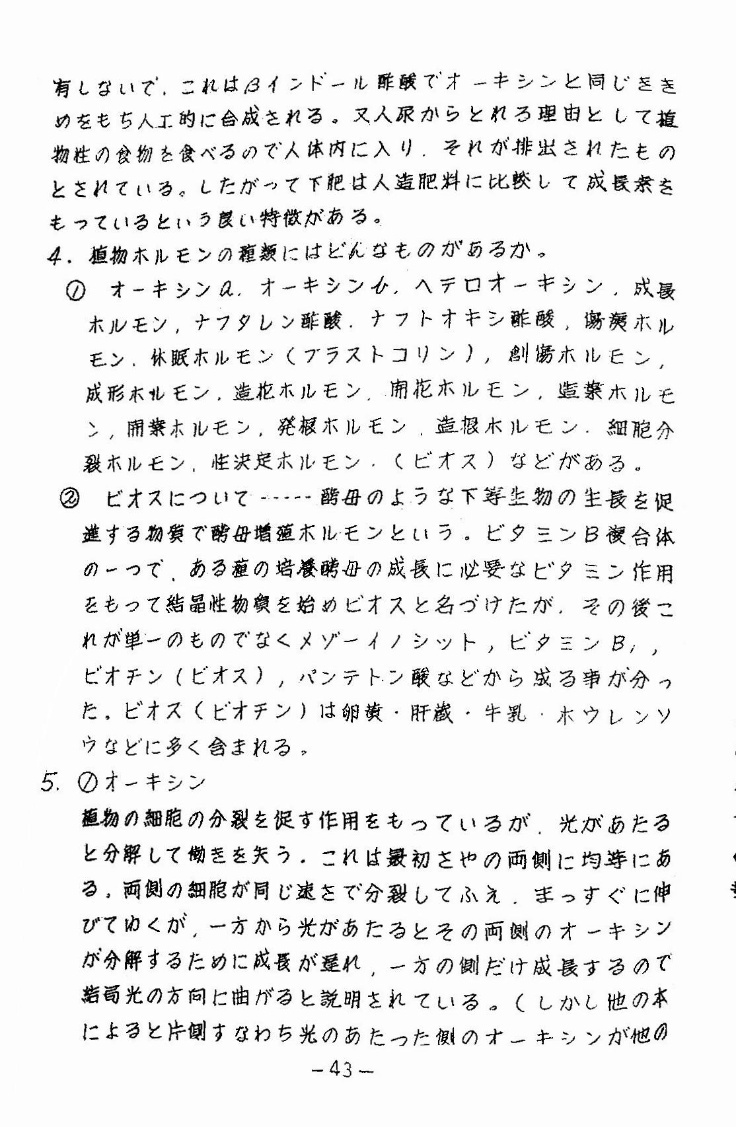 有しないで，これはβインドール酢酸でオーキシンと同じきき
めをもち人工的に合成される。又人尿からとれる理由として植
物性の食物を食べるので人体内に入り．それが排出されたもの
とされている。したがって下肥は人造肥料に比較して成長素を
もっているという良い特徴がある。
4．植物ホルモンの種類にはどんなものがあるか。
① オーキシンa．オーキシンb．ヘテロオーキシン．成長
ホルモン，ナフタレン酢酸．ナフトオキシ酢酸，傷痍ホル
モン．休眠ホルモン（ブラストコリン），創傷ホルモン，
成形ホルモン．造花ホルモン．開花ホルモン，造葉ホルモ
ン，開葉ホルモン，発根ホルモン．造根ホルモン．細胞分
裂ホルモン，性決定ホルモン．（ビオス）などがある。
② ビオスについて……酵母のような下等生物の生長を促
進する物質で酵母増殖ホルモンという。ビタミンB複合体
の一つで．ある種の培養酵母の成長に必要なビタミン作用
をもって結晶性物質を始めビオスと名づけたが．その後こ
れが単一のものでなくメゾーイノシット，ビタミンB₁，
ビオチン（ビオス），パンテトン酸などから成る事が分っ
た。ビオス（ビオチン）は卵黄・肝蔵・牛乳・ホウレンソ
ウなどに多く含まれる。
5．①オーキシン
植物の細胞の分裂を促す作用をもっているが．光があたる
と分解して働きを失う。これは最初さやの両側に均等にあ
る。両側の細胞が同じ速さで分裂してふえ．まっすぐに伸
びてゆくが．一方から光があたるとその両側のオーキシン
が分解するために成長が遅れ，一方の側だけ成長するので
結局光の方向に曲がると説明されている。（しかし他の本
によると片側すなわち光のあたった側のオーキシンが他の
－43－